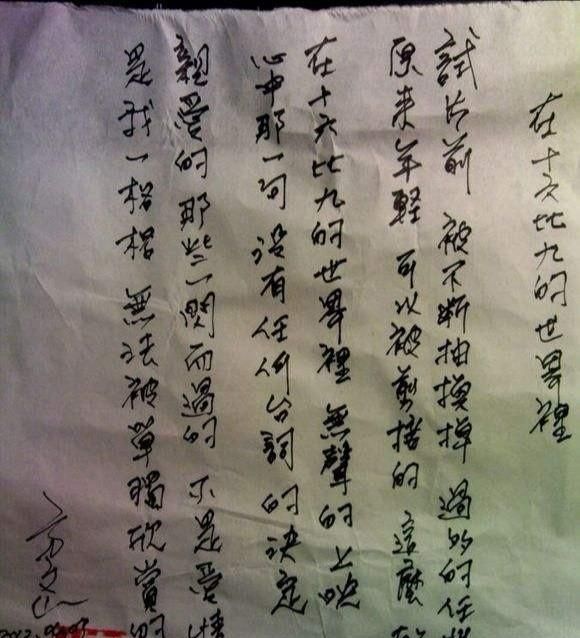 在十六比九的世界裡
試片前 被不斷抽換掉 過多的任
原來年輕 可以被剪接的 這麼
在十六比九的世界裡 無聲的
心中那一句 沒有任何台詞的決定
親愛的 那些一閃而過的 不是愛情
是我一格格 無法被單獨欣賞的
方文山